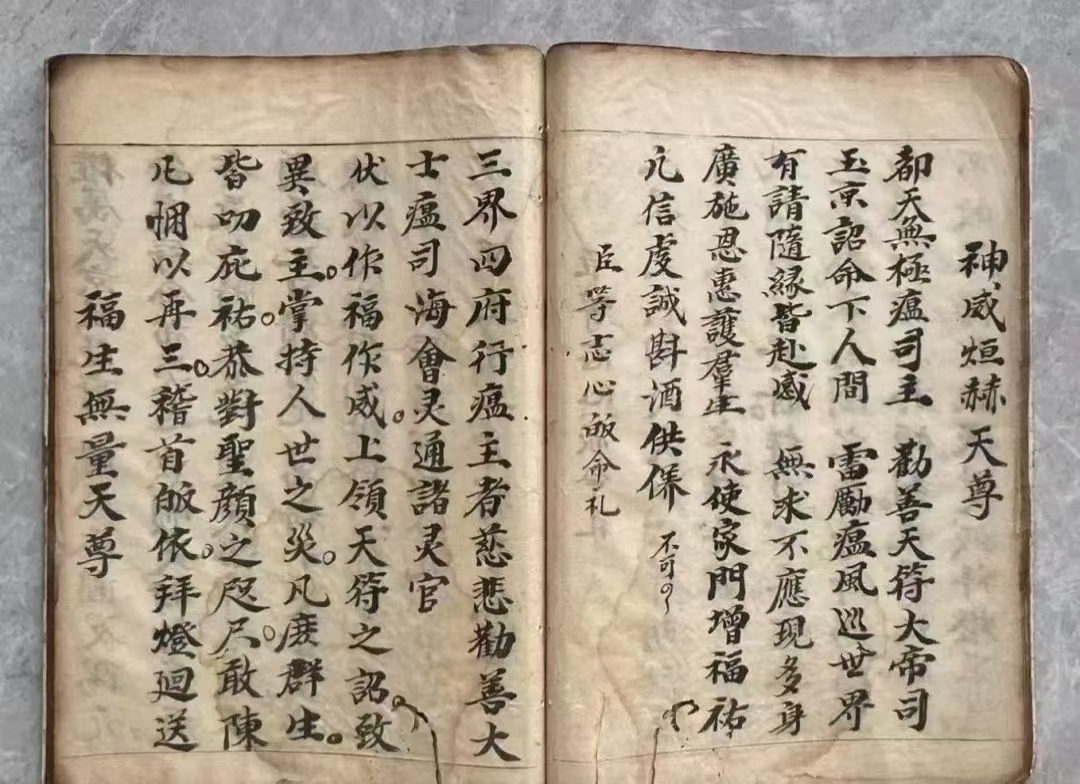 神威烜赫天尊
都天無極瘟司主 勸善天符大帝司
玉京詔命下人間 雷勵瘟風巡世界
有請隨緣皆赴感 無求不應現多身
廣施恩惠護羣生 永使家門增福祐
凢信虔誠斟酒供養 不可〇〱
臣等志心皈命礼
三界四府行瘟主者慈悲勸善大
士瘟司海會灵通諸灵官
伏以作福作威。上領天符之詔。致
異致主。掌持人世之災。凡庶群生。
皆叨庇祐。恭對聖顔之咫尺。敢陳
凢悃以再三。稽首皈依。拜燈廻送
福生無量天尊